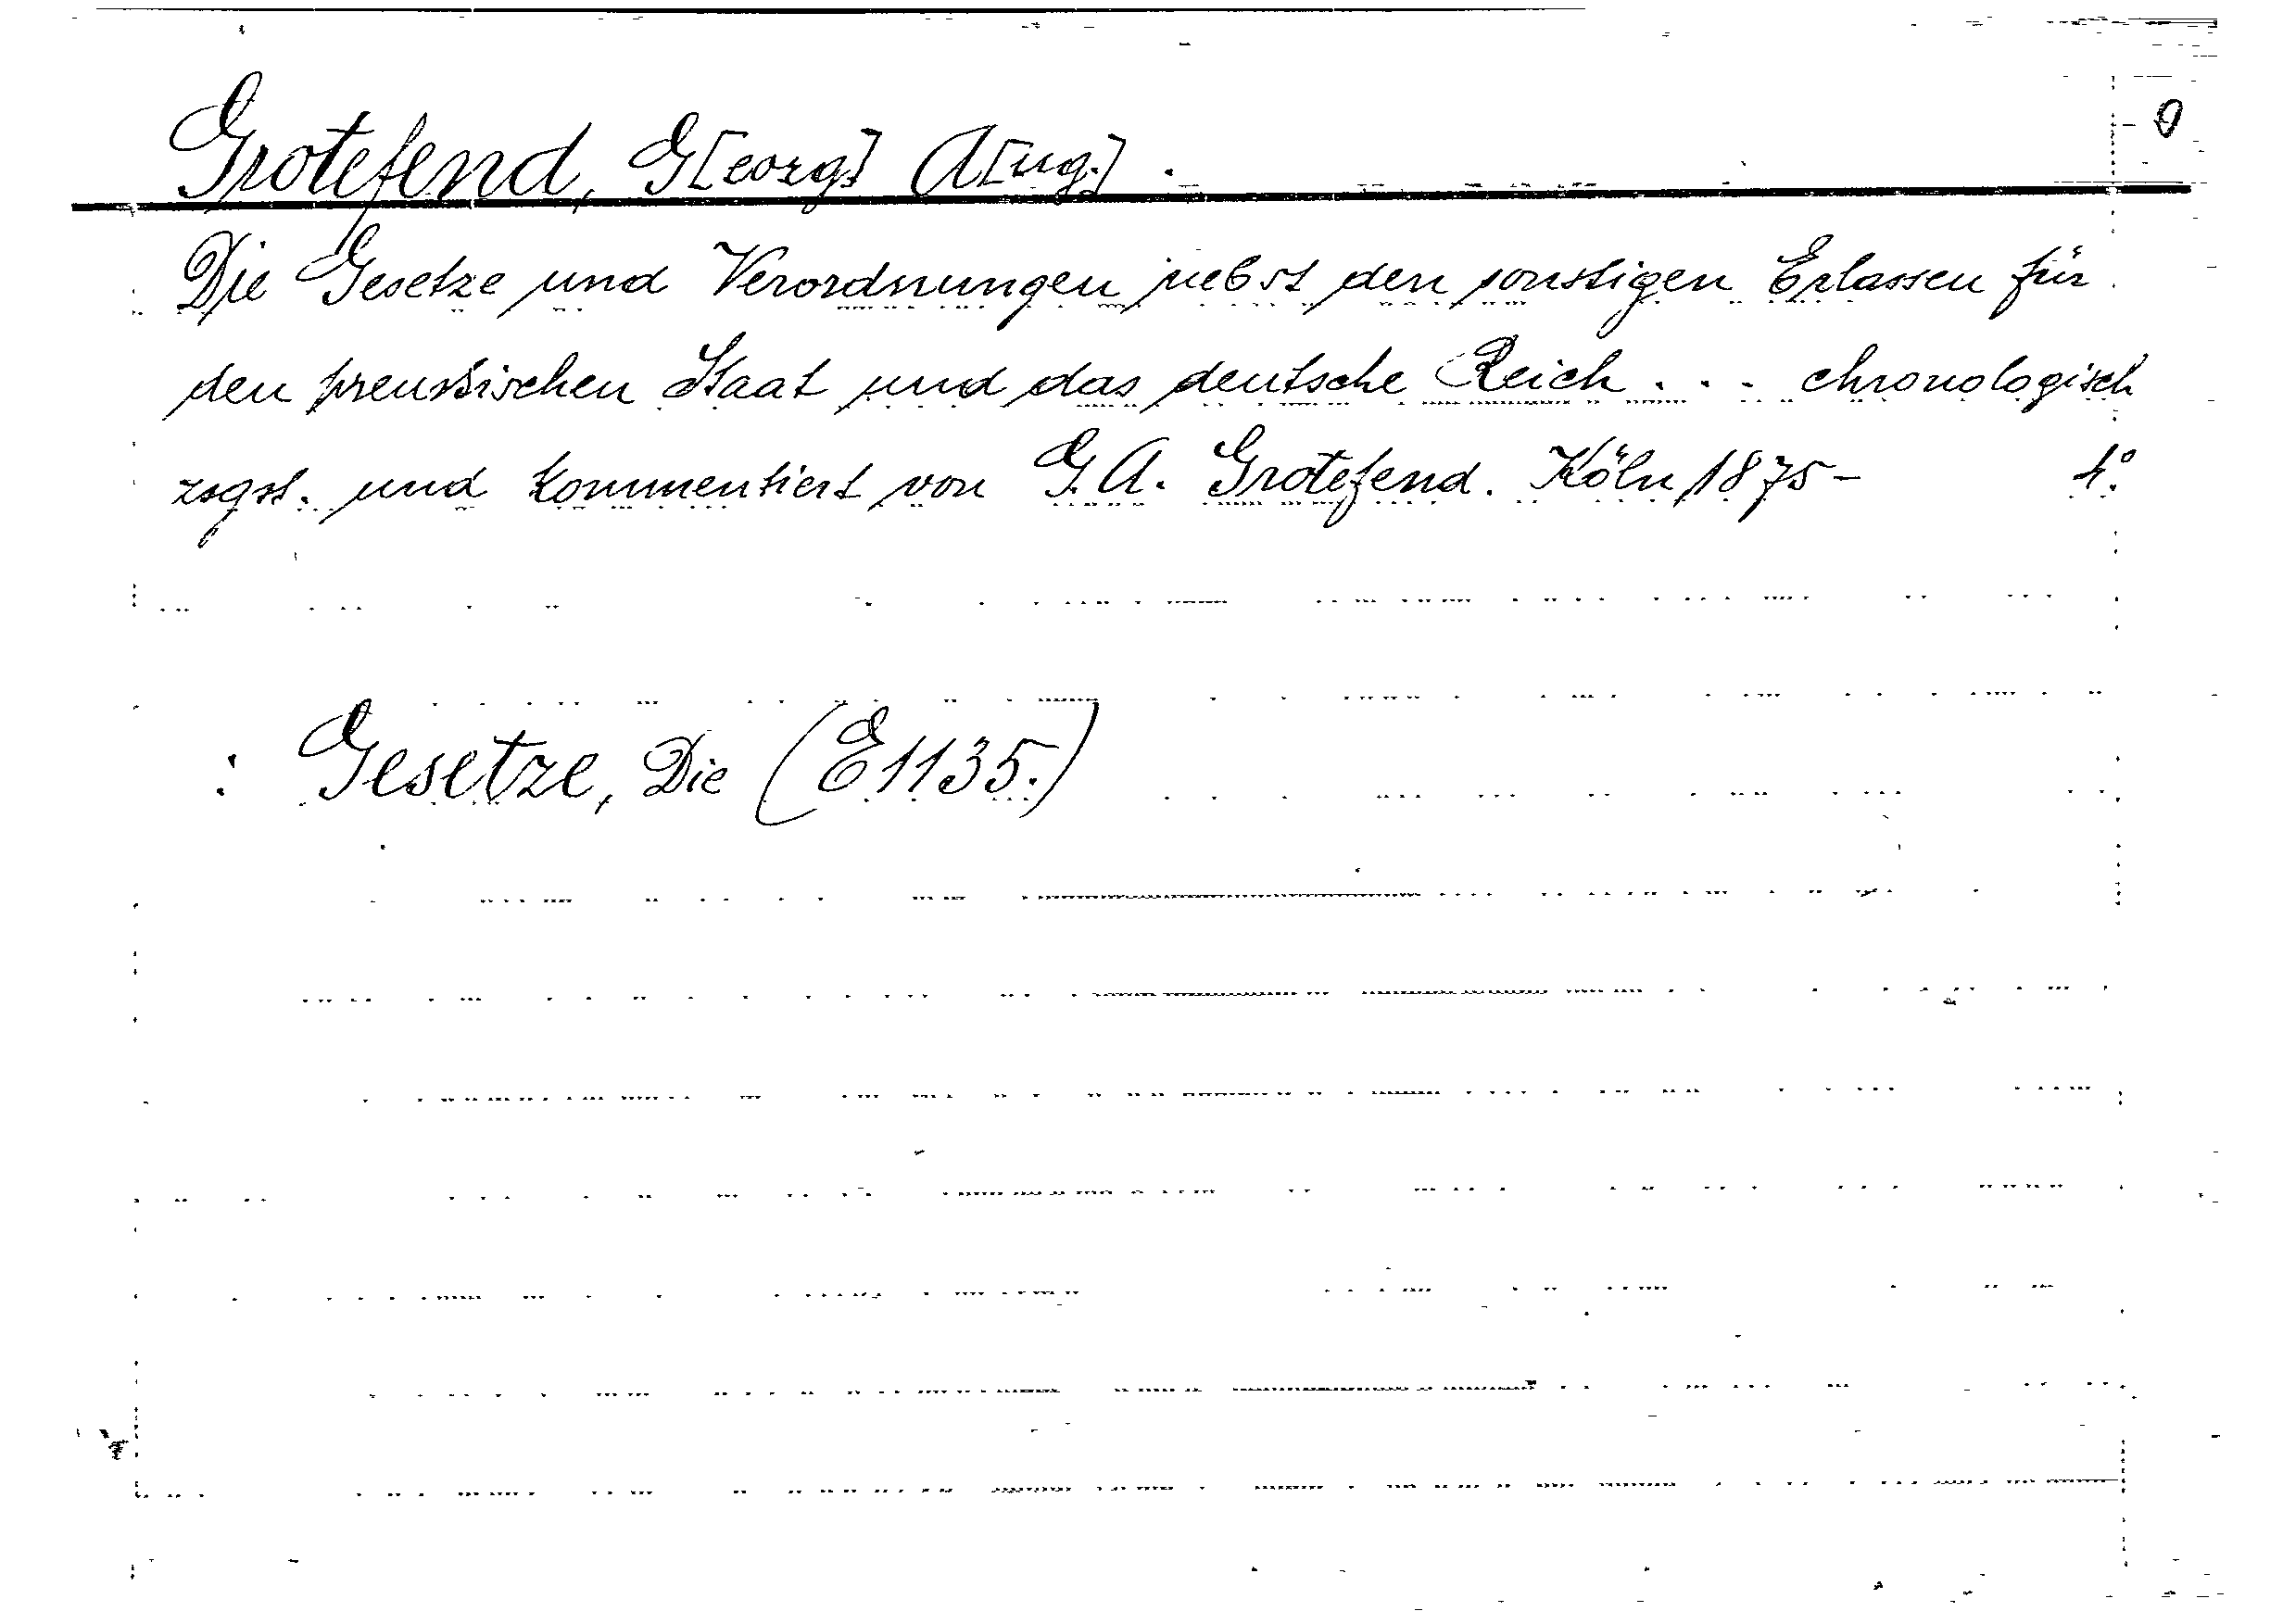 Grotefend, G[eorg] A[ug.]. 0
Die Gesetze und Verordnungen nebst den sonstigen Erlassen für
den preussischen Staat und das deutsche Reich ... chronologisch
zsgst. und kommentiert von G. A. Grotefend. Köln, 1875- 4°.
: Gesetze, Die (E 1135.)